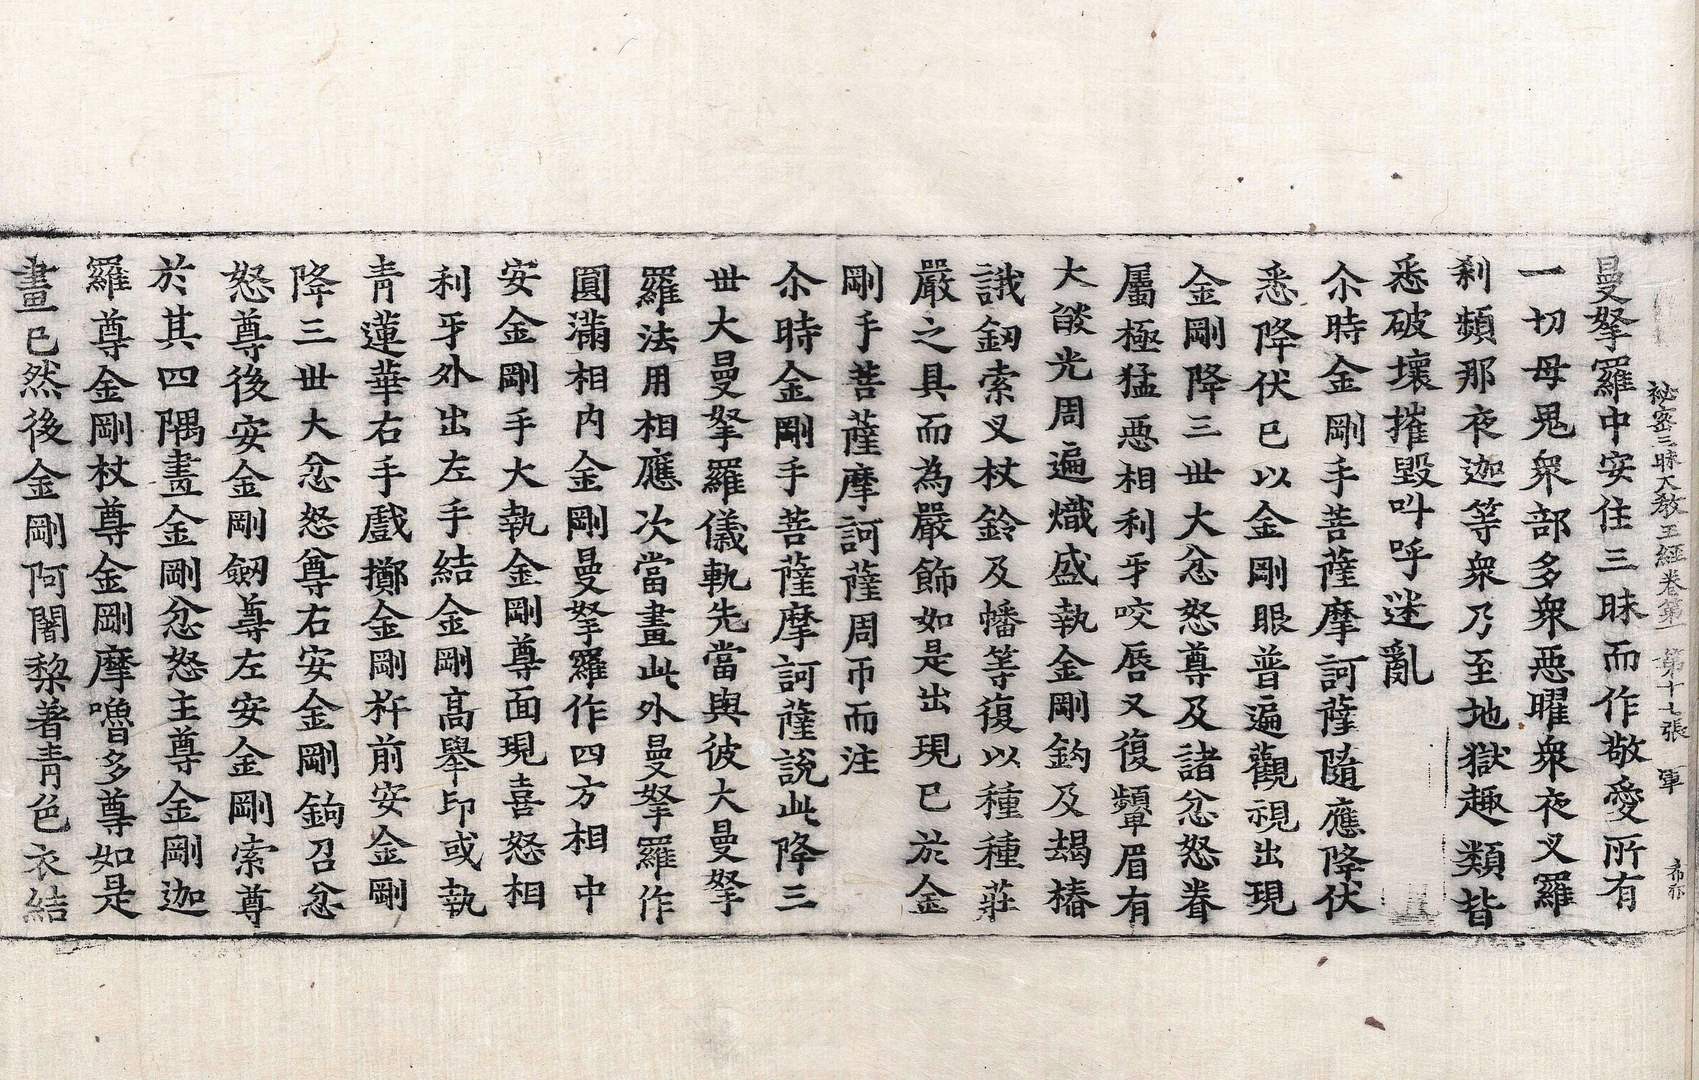 祕密三昧大敎王經卷第一 第十七張 軍
曼拏羅中安住三昧而作敬愛所有
一切母鬼衆部多衆惡曜衆夜叉羅
刹頻那夜迦等衆乃至地獄趣類皆
悉破壞摧毀叫呼迷亂
尒時金剛手菩薩摩訶薩隨應降伏
悉降伏已以金剛眼普遍觀視出現
金剛降三丗大忿怒尊及諸忿怒眷
屬極猛惡相利牙咬脣又復顰眉有
大燄光周遍熾盛執金剛鈎及朅椿
誐釰索叉杖鈴及幡等復以種種莊
嚴之具而為嚴飾如是出現已於金
剛手菩薩摩訶薩周帀而注
尒時金剛手菩薩摩訶薩說此降三
丗大曼拏羅儀軌先當與彼大曼拏
羅法用相應次當畫此外曼拏羅作
圓滿相內金剛曼拏羅作四方相中
安金剛手大執金剛尊面現喜怒相
利牙外出左手結金剛高舉印或執
青蓮華右手戲擲金剛杵前安金剛
降三丗大忿怒尊右安金剛鉤召忿
怒尊後安金剛劒尊左安金剛索尊
於其四隅畫金剛忿怒主尊金剛迦
羅尊金剛杖尊金剛摩嚕多尊如是
畫已然後金剛阿闍黎著青色衣結